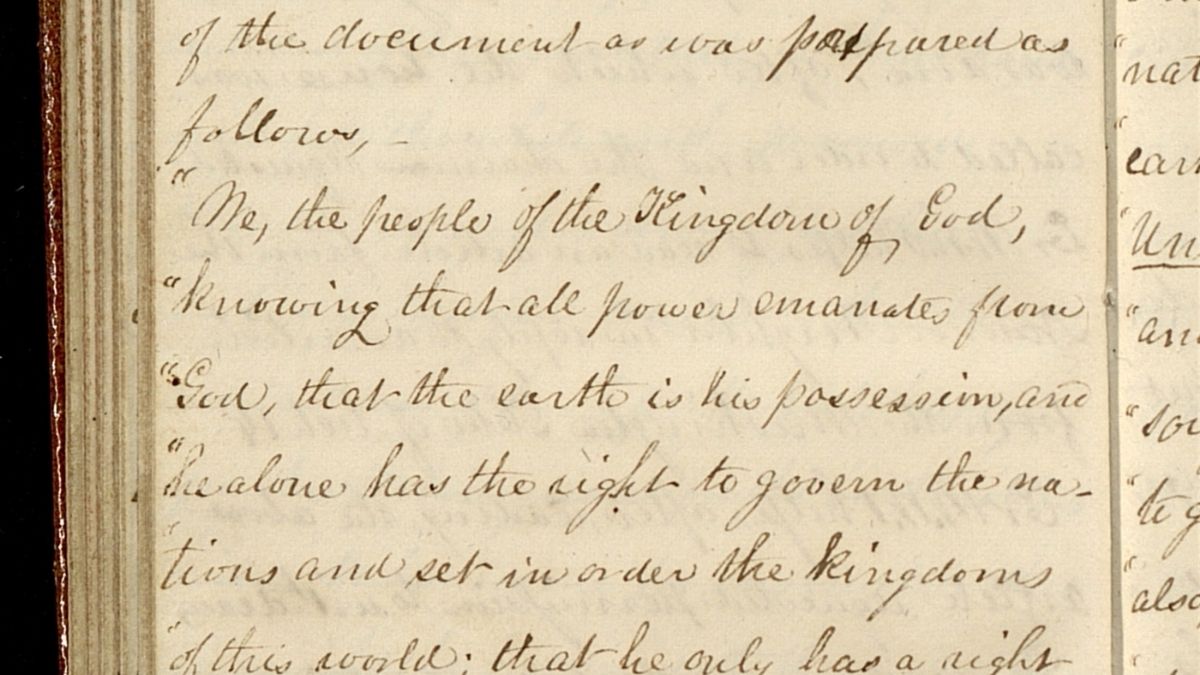 of the document as was prepared as
follows, –
"We, the people of the Kingdom of God,
"knowing that all power emanates from
"God, that the earth is his possession, and
"he alone has the right to govern the na-
"tions and set in order the kingdoms
"of this world; that he only has a right
"
nat
"
earn
"Un
"and
"sou
"to g
"also